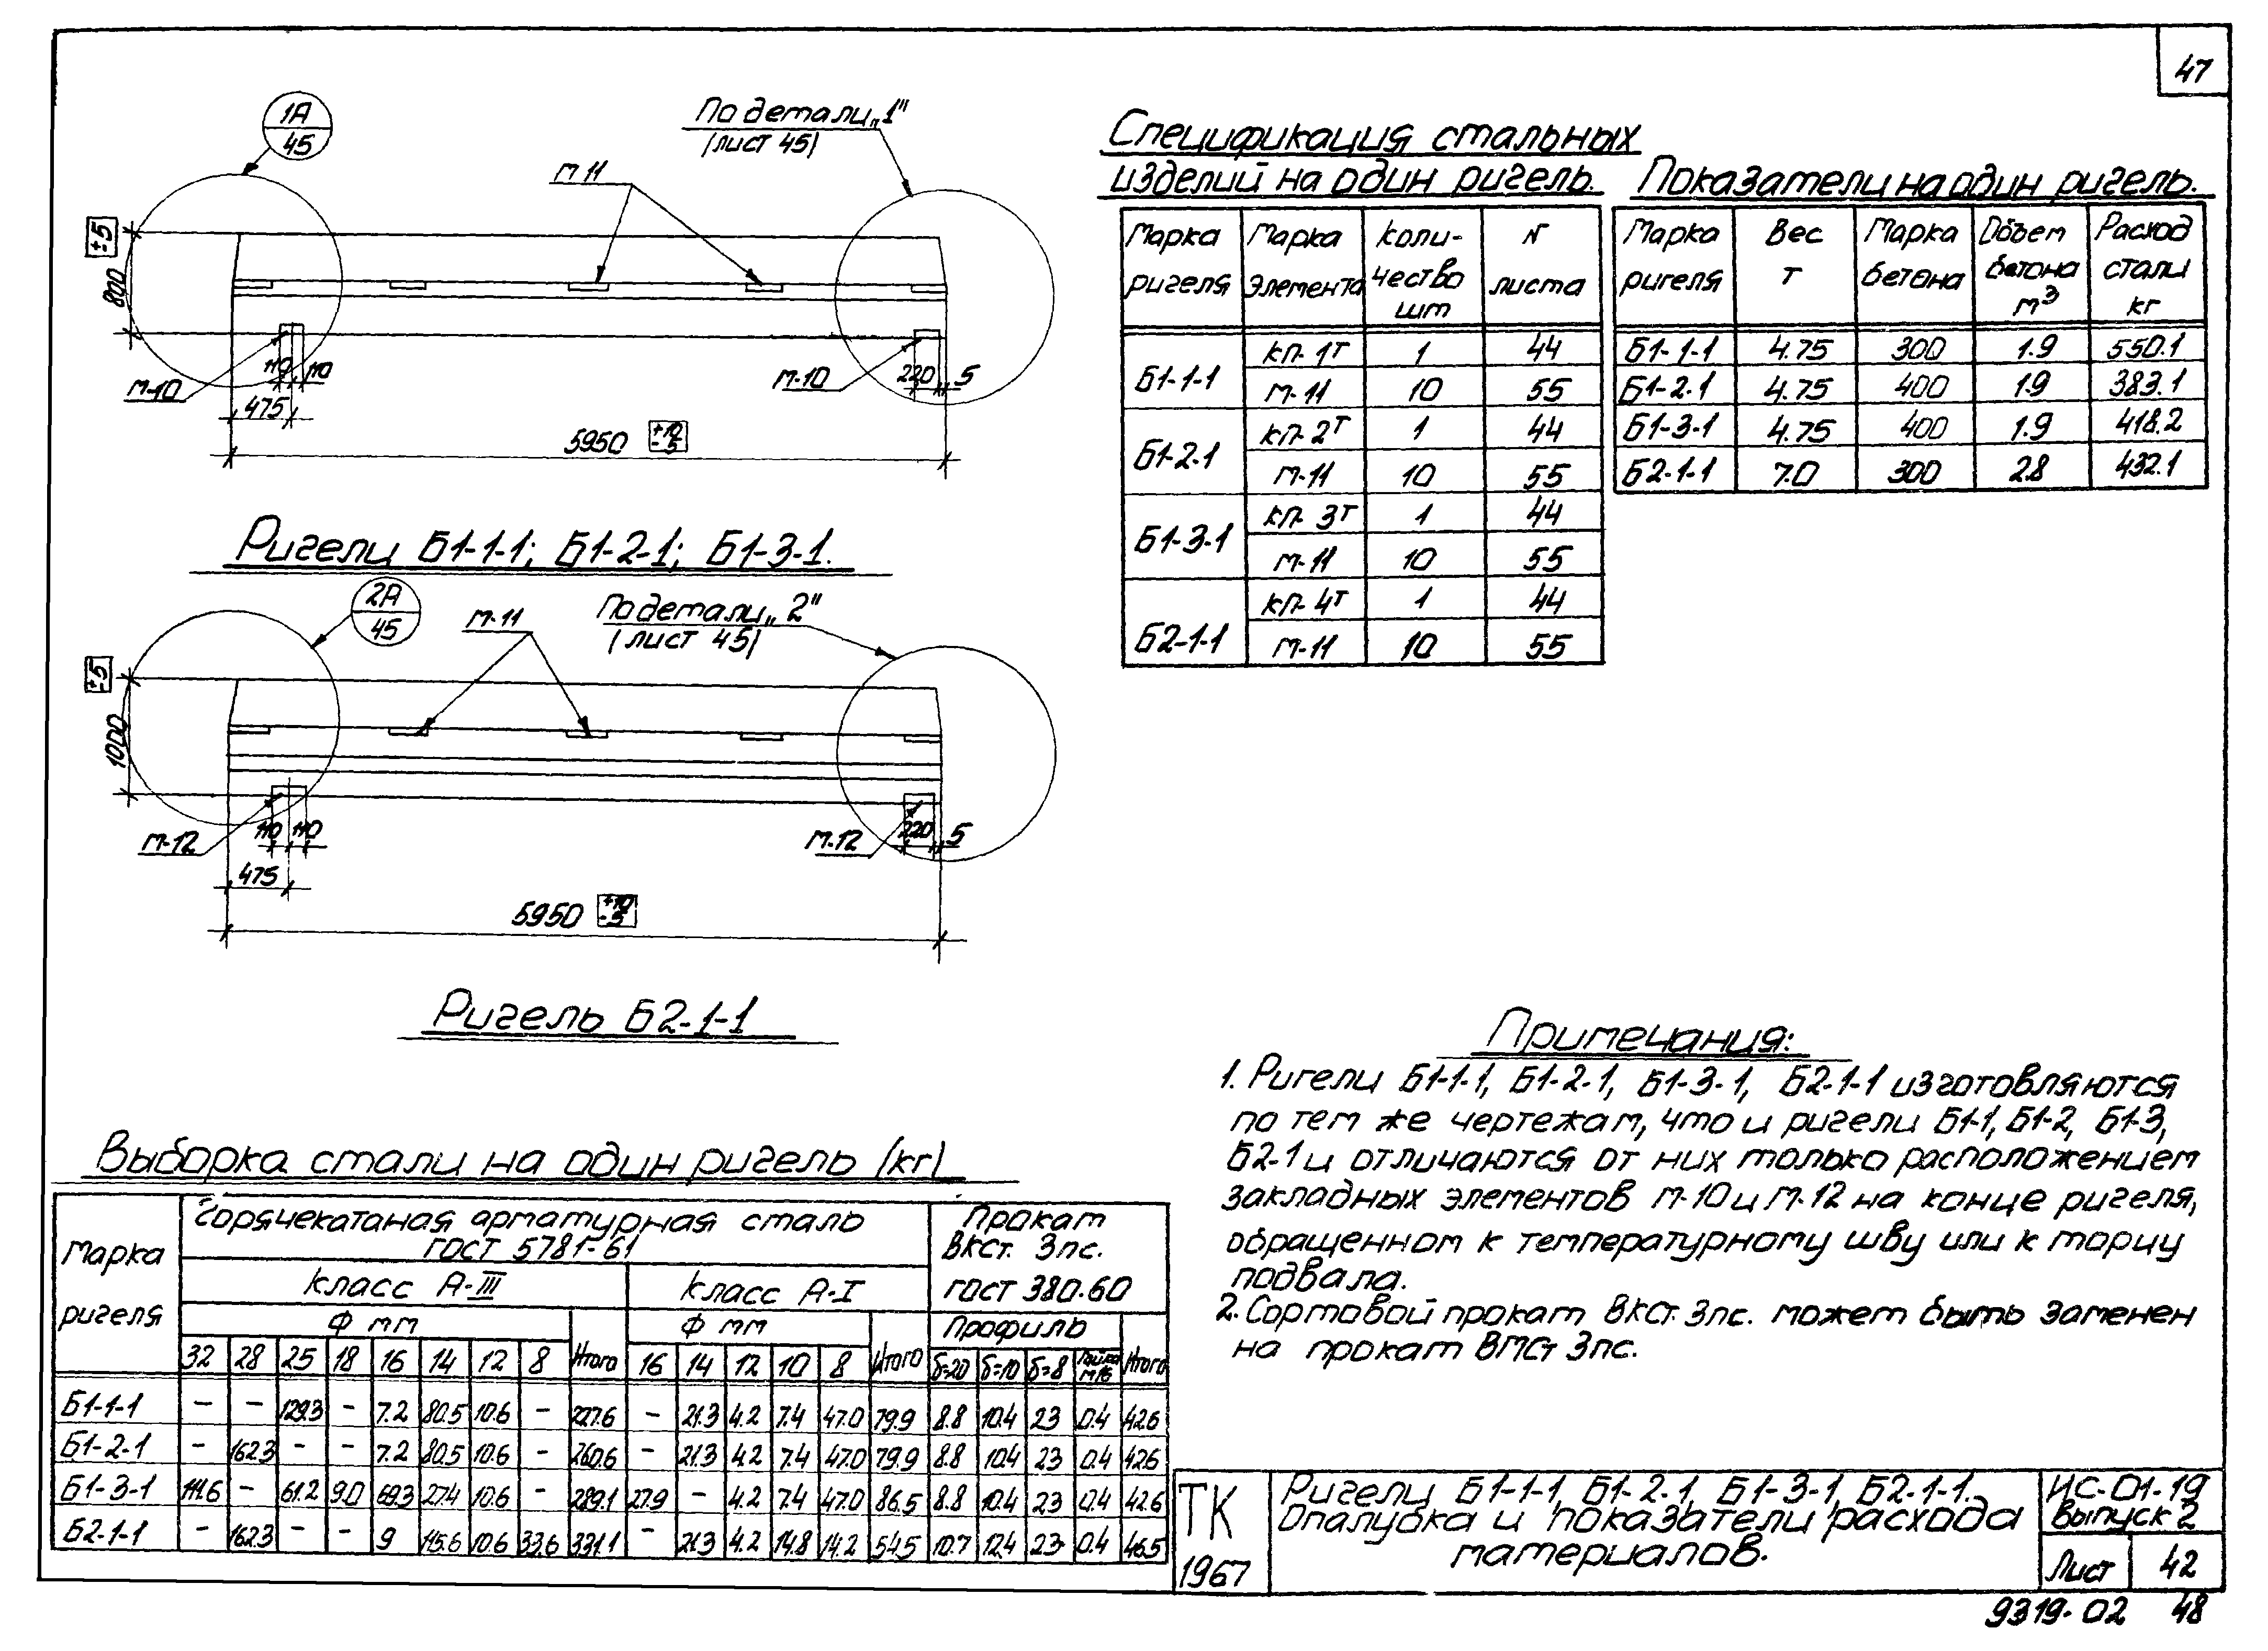 47
1А
45
По детали „1"
(лист 45)
М-11
±5
800
М-10
110 110
475
М-10
220 5
5950 +10 -5
Ригели Б1-1-1; Б1-2-1; Б1-3-1.
2А
45
М-11
По детали „2"
(лист 45)
±5
1000
М-12
110 110
475
М-12
220 5
5950 +10 -5
Ригель Б2-1-1
Спецификация стальных
изделий на один ригель.
Марка ригеля | Марка элемента | Коли-чество шт | N листа
Б1-1-1 | КП-1т | 1 | 44
М-11 | 10 | 55
Б1-2-1 | КП-2т | 1 | 44
М-11 | 10 | 55
Б1-3-1 | КП-3т | 1 | 44
М-11 | 10 | 55
Б2-1-1 | КП-4т | 1 | 44
М-11 | 10 | 55
Показатели на один ригель.
Марка ригеля | Вес т | Марка бетона | Объем бетона м³ | Расход стали кг
Б1-1-1 | 4.75 | 300 | 1.9 | 550.1
Б1-2-1 | 4.75 | 400 | 1.9 | 383.1
Б1-3-1 | 4.75 | 400 | 1.9 | 418.2
Б2-1-1 | 7.0 | 300 | 2.8 | 432.1
Примечания:
1. Ригели Б1-1-1, Б1-2-1, Б1-3-1, Б2-1-1 изготовляются
по тем же чертежам, что и ригели Б1-1, Б1-2, Б1-3,
Б2-1 и отличаются от них только расположением
закладных элементов М-10 и М-12 на конце ригеля,
обращенном к температурному шву или к торцу
подвала.
2. Сортовой прокат ВКСт. 3пс. может быть заменен
на прокат ВМСт 3пс.
Выборка стали на один ригель (кг)
Марка ригеля | Горячекатаная арматурная сталь ГОСТ 5781-61 | Прокат ВКСт. 3пс. ГОСТ 380-60
Класс А-III | Класс А-I
Ф мм | Итого | Ф мм | Итого | Профиль | Итого
32 | 28 | 25 | 18 | 16 | 14 | 12 | 8 | 16 | 14 | 12 | 10 | 8 | δ=20 | δ=10 | δ=8 | Гайка М16
Б1-1-1 | – | – | 129.3 | – | 7.2 | 80.5 | 10.6 | – | 227.6 | – | 21.3 | 4.2 | 7.4 | 47.0 | 79.9 | 8.8 | 10.4 | 23 | 0.4 | 42.6
Б1-2-1 | – | 162.3 | – | – | 7.2 | 80.5 | 10.6 | – | 260.6 | – | 21.3 | 4.2 | 7.4 | 47.0 | 79.9 | 8.8 | 10.4 | 23 | 0.4 | 42.6
Б1-3-1 | 111.6 | – | 61.2 | 9.0 | 69.3 | 27.4 | 10.6 | – | 289.1 | 27.9 | – | 4.2 | 7.4 | 47.0 | 86.5 | 8.8 | 10.4 | 23 | 0.4 | 42.6
Б2-1-1 | – | 162.3 | – | – | 9 | 115.6 | 10.6 | 33.6 | 331.1 | – | 21.3 | 4.2 | 14.8 | 14.2 | 54.5 | 10.7 | 12.4 | 23 | 0.4 | 46.5
ТК
1967
Ригели Б1-1-1, Б1-2-1, Б1-3-1, Б2-1-1.
Опалубка и показатели расхода
материалов.
ИС-01-19
Выпуск 2
Лист 42
9319-02 48